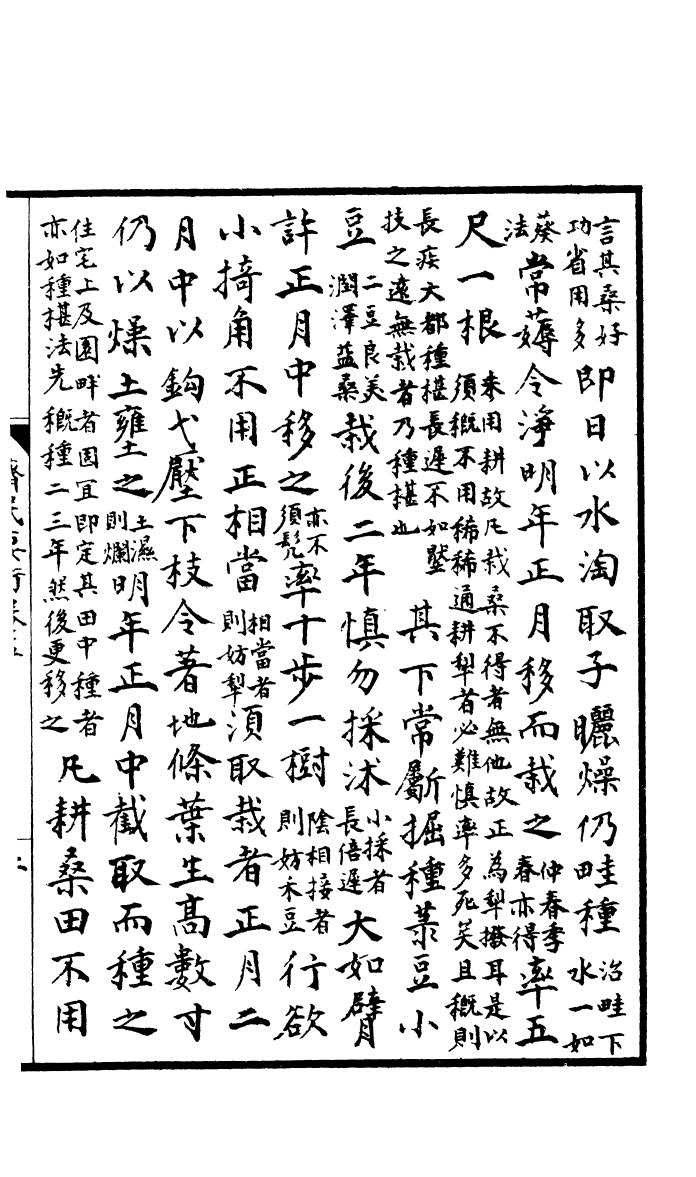 言其桑好功省用多即日以水淘取子曬燥仍畦種治畦下水一如
葵法常薅令淨明年正月移而栽之仲春季春亦得率五
尺一根未用耕故凡栽桑不得者無他故正為犁撥耳是以須穊不用稀稀通耕犁者必難慎率多死矣且穊則
長疾大都種椹長遲不如壓技之遠無栽者乃種椹也其下常斸掘種菉豆小
豆二豆良美潤澤益桑栽後二年慎勿採沭小採者長倍遲大如臂
許正月中移之亦不須髡率十步一樹陰相接者則妨禾豆行欲
小掎角不用正相當相當者則妨犁須取栽者正月二
月中以鉤弋壓下枝令著地條葉生高數寸
仍以燥土壅之土濕則爛明年正月中截取而種之
住宅上及園畔者固宜即定其田中種者亦如種椹法先穊種二三年然後更移之凡耕桑田不用